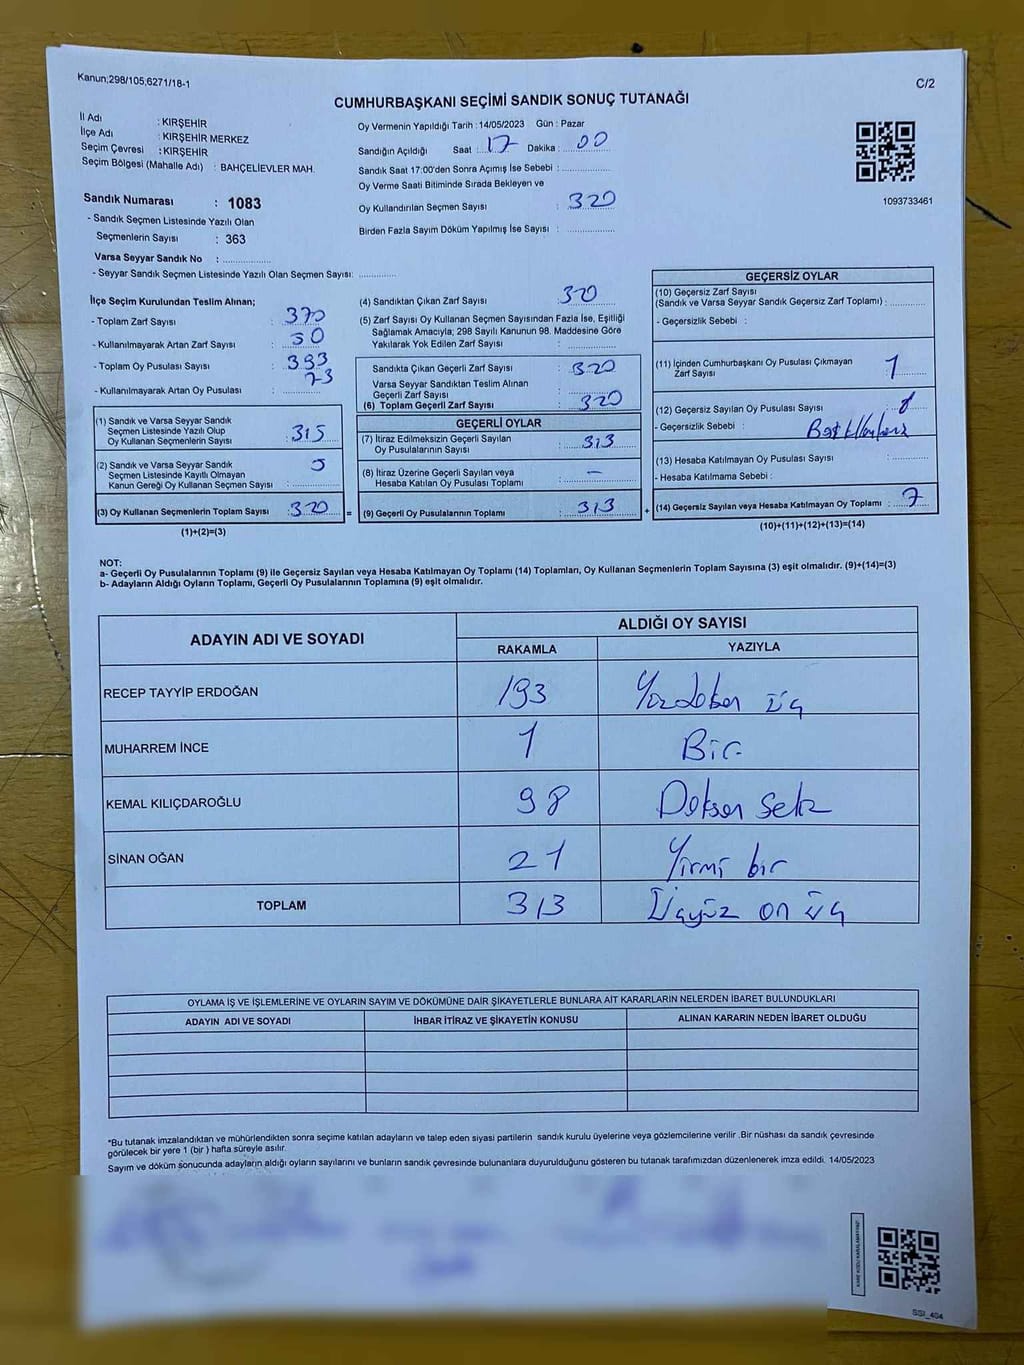 Kanun;298/105,6271/18-1
C/2
CUMHURBAŞKANI SEÇİMİ SANDIK SONUÇ TUTANAĞI
İl Adı : KIRŞEHİR
İlçe Adı : KIRŞEHİR MERKEZ
Seçim Çevresi : KIRŞEHİR
Seçim Bölgesi (Mahalle Adı) : BAHÇELİEVLER MAH.
Sandık Numarası : 1083
- Sandık Seçmen Listesinde Yazılı Olan
Seçmenlerin Sayısı : 363
Varsa Seyyar Sandık No :
- Seyyar Sandık Seçmen Listesinde Yazılı Olan Seçmen Sayısı:
Oy Vermenin Yapıldığı Tarih : 14/05/2023 Gün : Pazar
Sandığın Açıldığı Saat : 17 Dakika : 00
Sandık Saat 17:00'den Sonra Açımış İse Sebebi :
Oy Verme Saati Bitiminde Sırada Bekleyen ve
Oy Kullandırılan Seçmen Sayısı : 320
Birden Fazla Sayım Döküm Yapılmış İse Sayısı :
1093733461
İlçe Seçim Kurulundan Teslim Alınan;
- Toplam Zarf Sayısı : 370
- Kullanılmayarak Artan Zarf Sayısı : 50
- Toplam Oy Pusulası Sayısı : 393
- Kullanılmayarak Artan Oy Pusulası : 73
(1) Sandık ve Varsa Seyyar Sandık
Seçmen Listesinde Yazılı Olup
Oy Kullanan Seçmenlerin Sayısı : 315
(2) Sandık ve Varsa Seyyar Sandık
Seçmen Listesinde Kayıtlı Olmayan
Kanun Gereği Oy Kullanan Seçmen Sayısı : 5
(3) Oy Kullanan Seçmenlerin Toplam Sayısı : 320
(1)+(2)=(3)
=
(4) Sandıktan Çıkan Zarf Sayısı : 320
(5) Zarf Sayısı Oy Kullanan Seçmen Sayısından Fazla İse, Eşitliği
Sağlamak Amacıyla; 298 Sayılı Kanunun 98. Maddesine Göre
Yakılarak Yok Edilen Zarf Sayısı :
Sandıkta Çıkan Geçerli Zarf Sayısı : 320
Varsa Seyyar Sandıktan Teslim Alınan
Geçerli Zarf Sayısı :
(6) Toplam Geçerli Zarf Sayısı : 320
GEÇERLİ OYLAR
(7) İtiraz Edilmeksizin Geçerli Sayılan
Oy Pusulalarının Sayısı : 313
(8) İtiraz Üzerine Geçerli Sayılan veya
Hesaba Katılan Oy Pusulası Toplamı : –
(9) Geçerli Oy Pusulalarının Toplamı : 313
+
GEÇERSİZ OYLAR
(10) Geçersiz Zarf Sayısı
(Sandık ve Varsa Seyyar Sandık Geçersiz Zarf Toplamı) :
- Geçersizlik Sebebi :
(11) İçinden Cumhurbaşkanı Oy Pusulası Çıkmayan
Zarf Sayısı : 1
(12) Geçersiz Sayılan Oy Pusulası Sayısı :
- Geçersizlik Sebebi :
(13) Hesaba Katılmayan Oy Pusulası Sayısı :
- Hesaba Katılmama Sebebi :
(14) Geçersiz Sayılan veya Hesaba Katılmayan Oy Toplamı : 7
(10)+(11)+(12)+(13)=(14)
NOT:
a- Geçerli Oy Pusulalarının Toplamı (9) ile Geçersiz Sayılan veya Hesaba Katılmayan Oy Toplamı (14) Toplamları, Oy Kullanan Seçmenlerin Toplam Sayısına (3) eşit olmalıdır. (9)+(14)=(3)
b- Adayların Aldığı Oyların Toplamı, Geçerli Oy Pusulalarının Toplamına (9) eşit olmalıdır.
ADAYIN ADI VE SOYADI
ALDIĞI OY SAYISI
RAKAMLA YAZIYLA
RECEP TAYYİP ERDOĞAN 193 Yüzdoksan üç
MUHARREM İNCE 1 Bir
KEMAL KILIÇDAROĞLU 98 Doksan sekiz
SİNAN OĞAN 21 Yirmi bir
TOPLAM 313 Üçyüz on üç
OYLAMA İŞ VE İŞLEMLERİNE VE OYLARIN SAYIM VE DÖKÜMÜNE DAİR ŞİKAYETLERLE BUNLARA AİT KARARLARIN NELERDEN İBARET BULUNDUKLARI
ADAYIN ADI VE SOYADI İHBAR İTİRAZ VE ŞİKAYETİN KONUSU ALINAN KARARIN NEDEN İBARET OLDUĞU
*Bu tutanak imzalandıktan ve mühürlendikten sonra seçime katılan adayların ve talep eden siyasi partilerin sandık kurulu üyelerine veya gözlemcilerine verilir .Bir nüshası da sandık çevresinde
görülecek bir yere 1 (bir ) hafta süreyle asılır.
Sayım ve döküm sonucunda adayların aldığı oyların sayılarını ve bunların sandık çevresinde bulunanlara duyurulduğunu gösteren bu tutanak tarafımızdan düzenlenerek imza edildi. 14/05/2023
KARE KODU KARALAMAYINIZ!
SSI_404